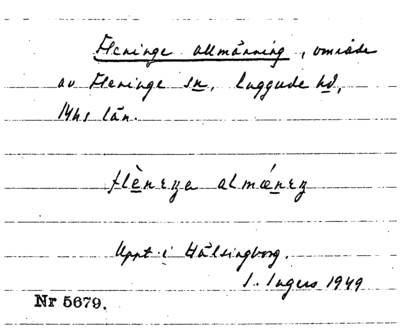 Fleninge allmänning, område
av Fleninge sn, Luggude hd,
Mhs län.
flènıŋa almǽnıŋ
Uppt. i Hälsingborg.
I. Ingers 1949
Nr 5679.